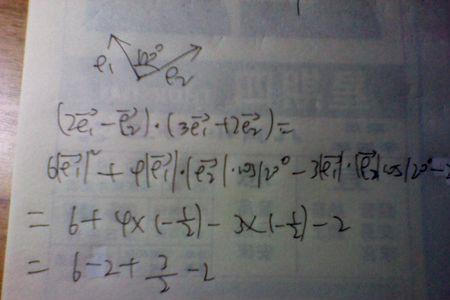 e₁ 120° e₂
(2e₁⃗ - e₂⃗)·(3e₁⃗ + 2e₂⃗) =
6|e₁⃗|² + 4|e₁⃗|·|e₂⃗|·cos120° - 3|e₁⃗|·|e₂⃗|cos120° - 2
= 6 + 4×(-1/2) - 3×(-1/2) - 2
= 6 - 2 + 3/2 - 2